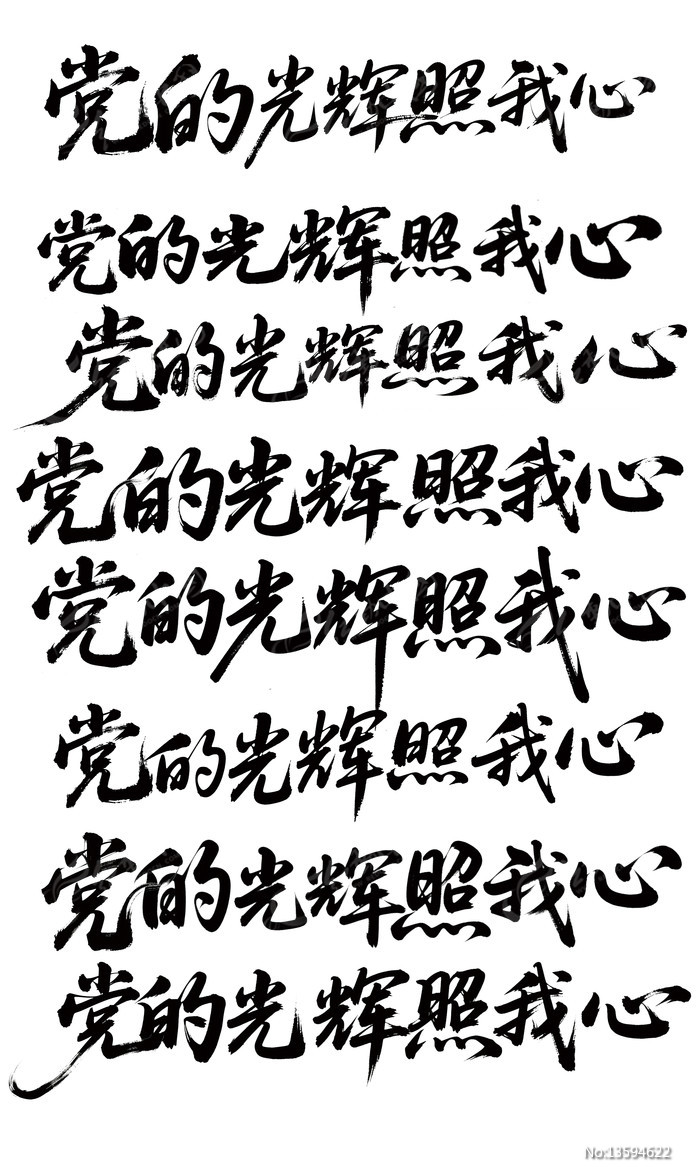 党的光辉照我心
党的光辉照我心
党的光辉照我心
党的光辉照我心
党的光辉照我心
党的光辉照我心
党的光辉照我心
党的光辉照我心
No:13594622